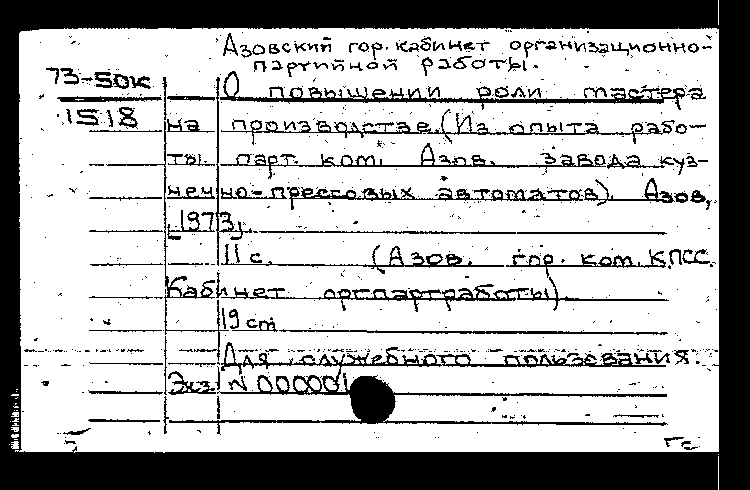 Азовский гор. кабинет организационно-
партийной работы.
73-50к
О повышении роли мастера
1518
на производстве. (Из опыта рабо-
ты парт. ком. Азов. завода куз-
нечно-прессовых автоматов). Азов,
[1973].
11 с. (Азов. гор. ком. КПСС.
Кабинет оргпартработы).
19 cm
Для служебного пользования.
Экз. N 000001